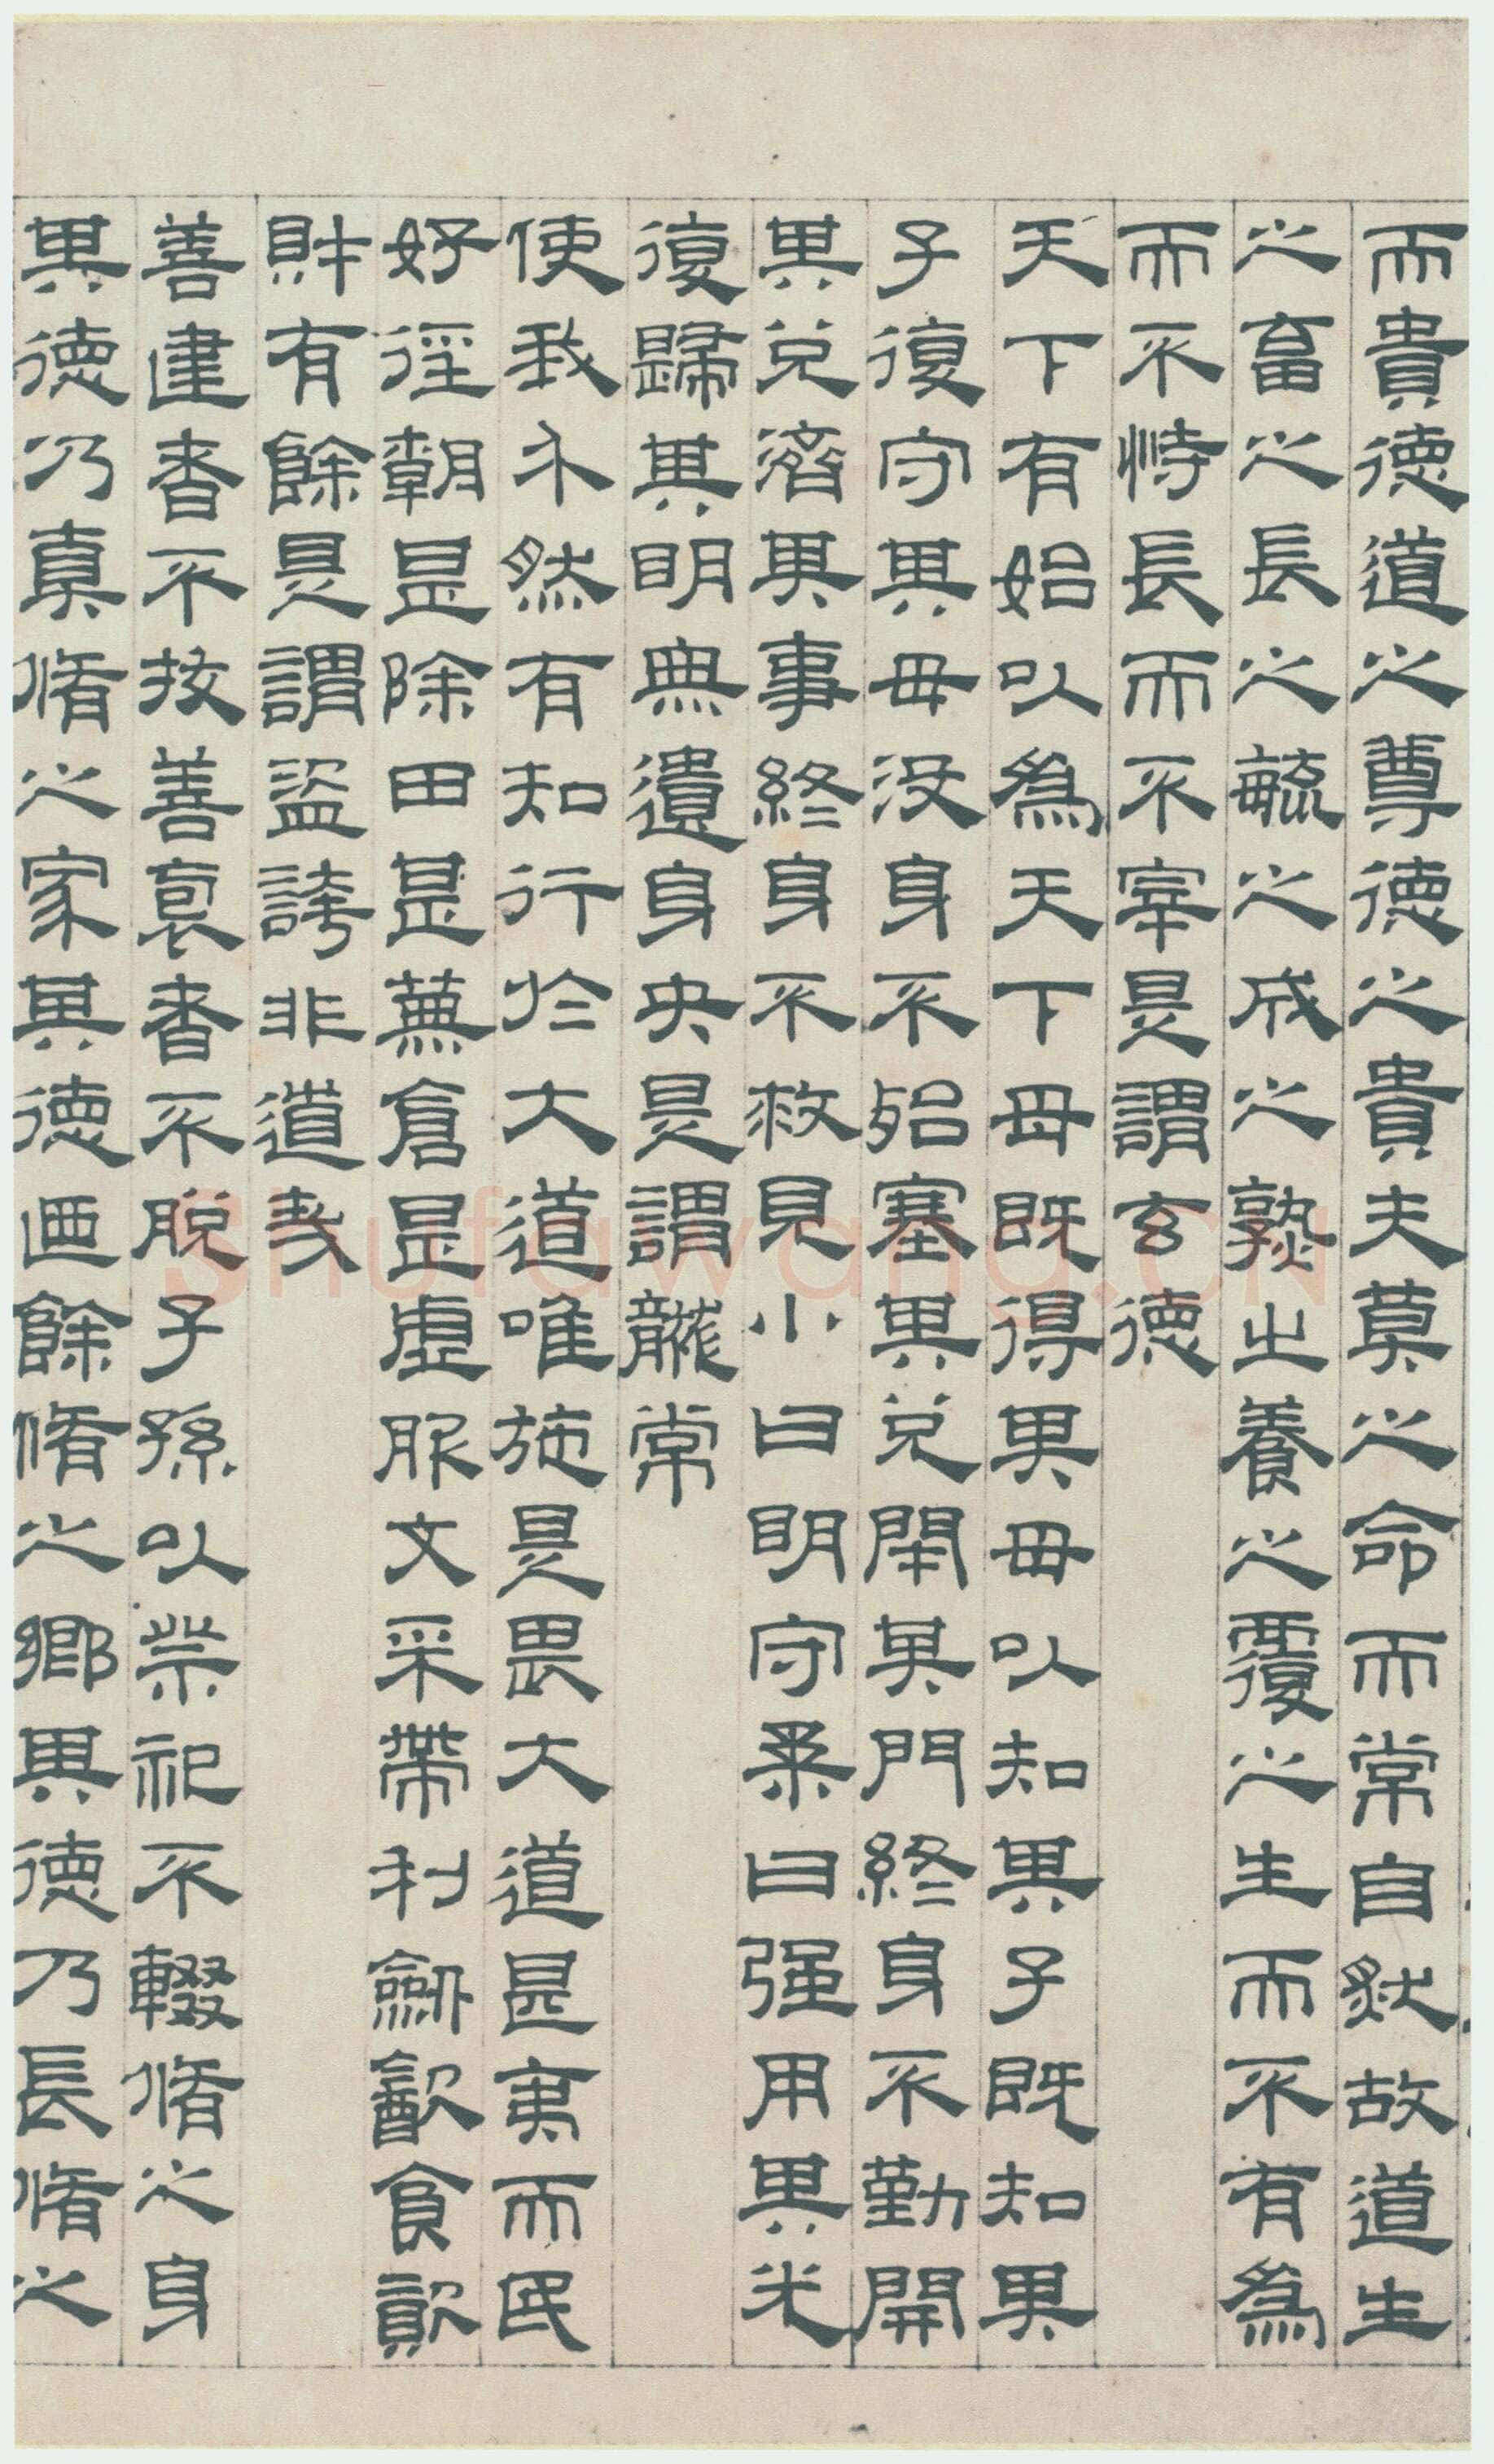 而貴德道之尊德之貴夫莫之命而常自然故道生
之畜之長之毓之成之孰之養之覆之生而不有爲
而不恃長而不宰是謂玄德
天下有始以爲天下母既得其母以知其子既知其
子復守其母没身不殆塞其兌閉其門終身不勤開
其兌濟其事終身不救見小曰明守柔曰强用其光
復歸其明無遺身央是謂襲常
使我介然有知行於大道唯施是畏大道甚夷而民
好徑朝是除田是蕪倉是虛服文采帶利劒猒食歕
財有餘是謂盜誇非道哉
善建者不拔善裒者不脫子孫以祭祀不輟脩之身
其德乃真脩之家其德乃餘脩之鄉其德乃長脩之
Shufawang.CN